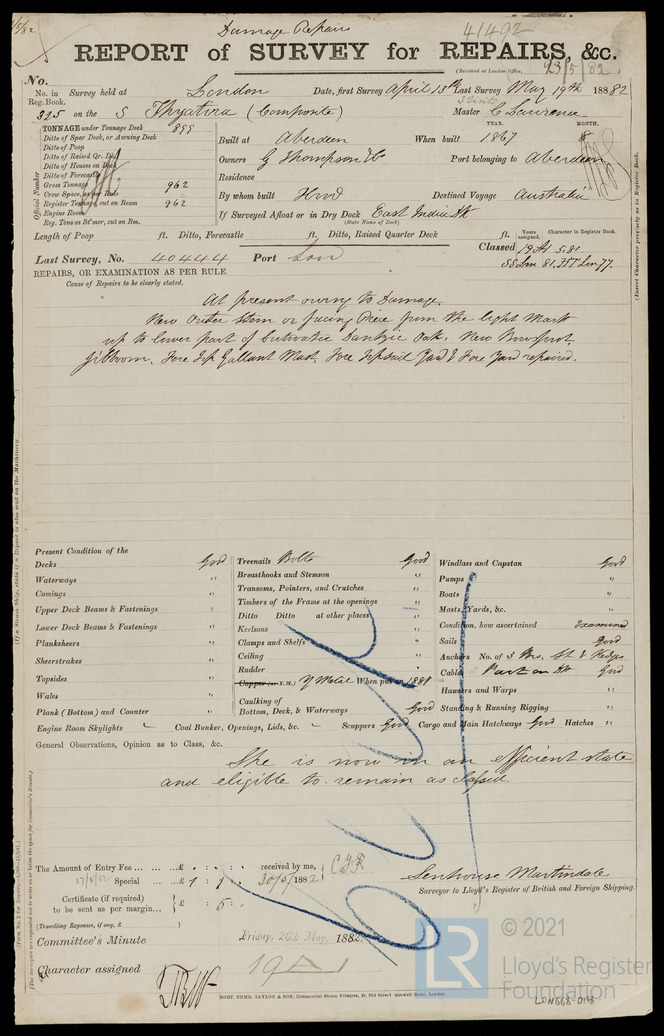 Damage Repairs
41492
REPORT of SURVEY for REPAIRS, &c.
(Received at London Office, 23/5/82.)
No.
No. in Reg. Book. Survey held at London Date, first Survey April 13th Last Survey May 19th 1882
325 on the S Thyatira (Composite) Master C Lawrence
TONNAGE under Tonnage Deck 899
Ditto of Spar Deck, or Awning Deck
Ditto of Poop
Ditto of Raised Qr. Dk.
Ditto of Houses on Deck
Ditto of Forecastle
Gross Tonnage 962
Crew Space, as per Rule
Register Tonnage, cut on Beam 962
Engine Room
Reg. Tons as St'mer, cut on Bm.
Official Number
YEAR. MONTH.
Built at Aberdeen When built 1867 8
Owners G Thompson & Co Port belonging to Aberdeen
Residence
By whom built Hood Destined Voyage Australia
If Surveyed Afloat or in Dry Dock East India Dk
(State Name of Dock)
Length of Poop ft. Ditto, Forecastle ft. Ditto, Raised Quarter Deck ft.
Years assigned. Character in Register Book.
Classed 19 A1 5.81
SS Lon 81
Last Survey, No. 40444 Port Lon
REPAIRS, OR EXAMINATION AS PER RULE
Cause of Repairs to be clearly stated.
At present owing to Damage.
New Outer Stem or facing Piece from the light Mark
up to lower part of Cutwater Dantzic Oak. New Bowsprit,
Jibboom, Fore Top Gallant Mast, Fore Topsail Yard & Fore Yard repaired.
Present Condition of the
Decks Good
Waterways "
Comings "
Upper Deck Beams & Fastenings "
Lower Deck Beams & Fastenings "
Planksheers "
Sheerstrakes "
Topsides "
Wales "
Plank (Bottom) and Counter "
Treenails Bolts Good
Breasthooks and Stemson "
Transoms, Pointers, and Crutches "
Timbers of the Frame at the openings "
Ditto Ditto at other places "
Keelsons
Clamps and Shelfs
Ceiling "
Rudder "
Copper (or Y.M.) Y Metal When put on 1881
Caulking of Bottom, Deck, & Waterways Good
Windlass and Capstan Good
Pumps "
Boats "
Masts, Yards, &c. "
Condition, how ascertained Examined
Sails Good
Anchors No. of 3 Brs. St & Kedge
Cable Part on Dk Good
Hawsers and Warps "
Standing & Running Rigging "
Engine Room Skylights Coal Bunker, Openings, Lids, &c. Scuppers Good Cargo and Main Hatchways Good Hatches "
General Observations, Opinion as to Class, &c.
She is now in an efficient state
and eligible to remain as classed
The Amount of Entry Fee ... £ : : received by me,
Special ... £ 1 : 1 : 30/5/1882
Certificate (if required) to be sent as per margin... £ : 5 :
(Travelling Expenses, if any, £ )
Senhouse Martindale
Surveyor to Lloyd's Register of British and Foreign Shipping.
Committee's Minute Friday, 26th May, 1882.
Character assigned 19 A 1
ROBT. EDMD. TAYLOR & SON, Commercial Steam Printers, 19, Old Street, Goswell Road, London.
© 2021
LR Lloyd's Register
Foundation
LDN668-0148